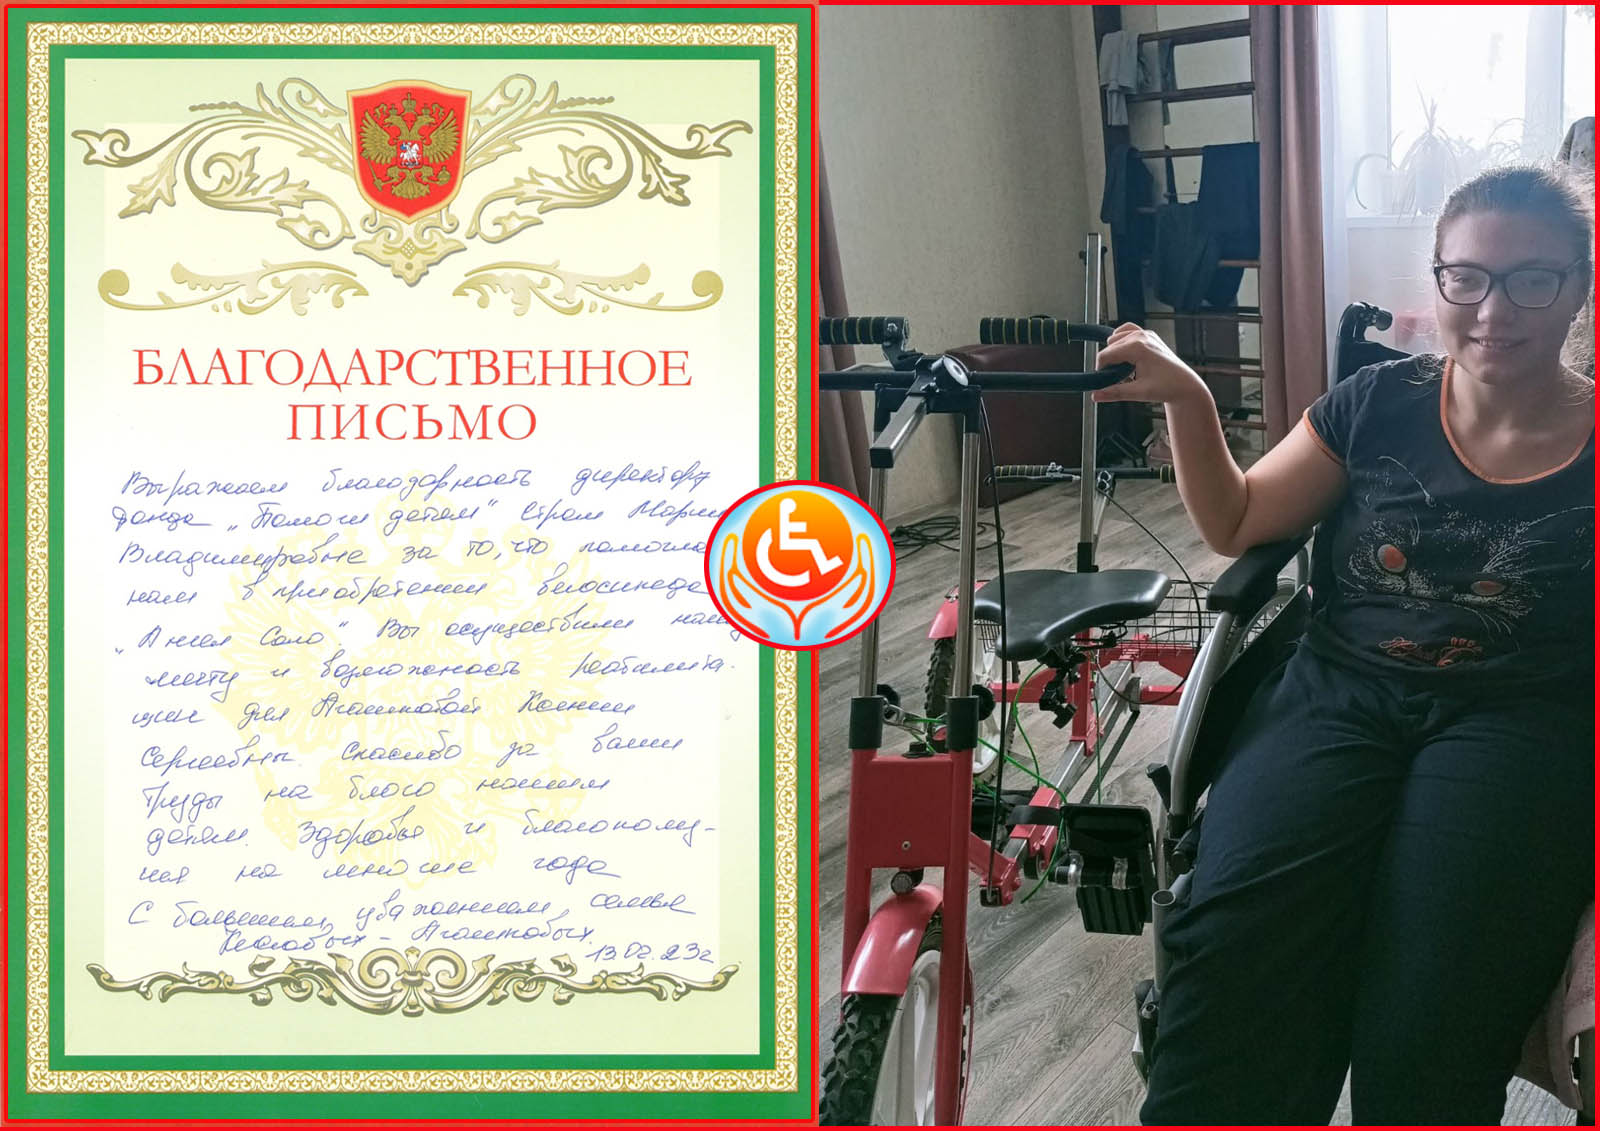 БЛАГОДАРСТВЕННОЕ
ПИСЬМО
Выражаем благодарность директору
Фонда „Помоги детям" Стром Марии
Владимировне за то, что помогла
нам в приобретении велосипеда
„Ангел Соло". Вы осуществили нашу
мечту и возможность реабилита-
ции для Агашковой Ксении
Сергеевны. Спасибо за ваши
труды на благо нашим
детям. Здоровья и благополу-
чия на многие года
С большим уважением, семья
Агашковых.
13.02.23г